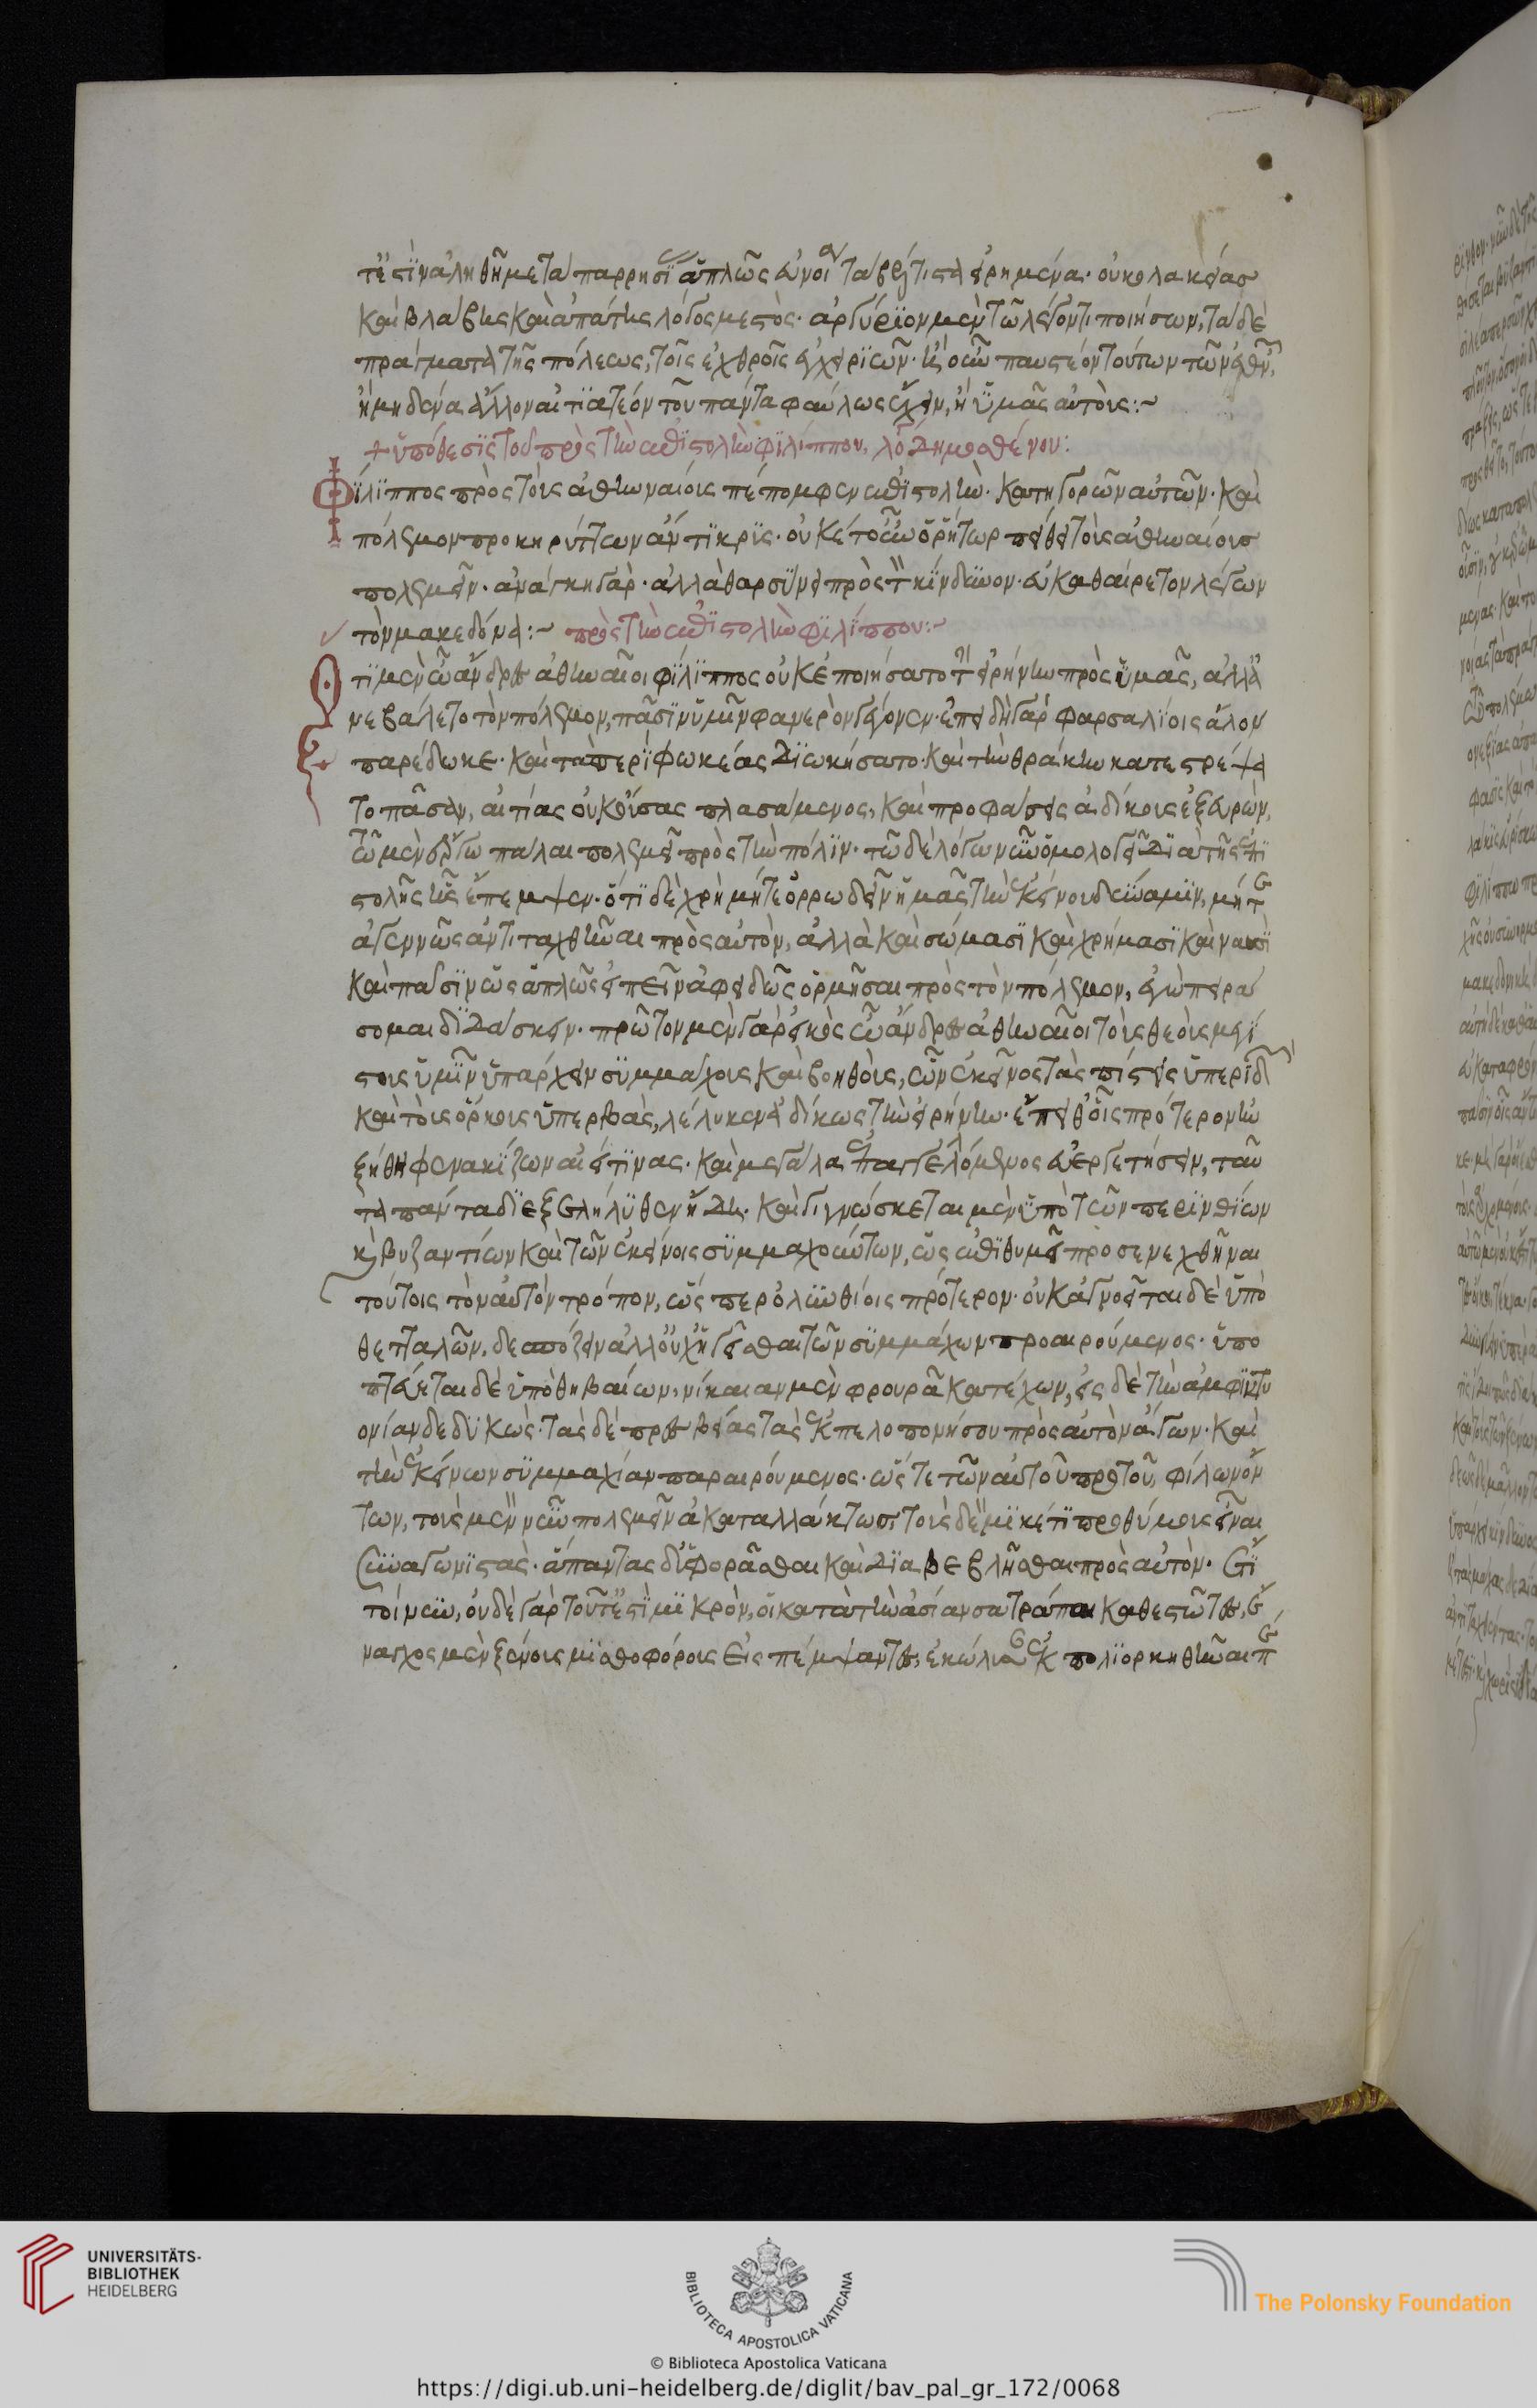 τἔςϊν ἀληθῆ μετὰ παρρησΐ ἁπλῶς εὐνοίᾳ τὰ βέλτιςα εἰρημένα· οὐ κολακείας
καὶ βλάβης καὶ ἀπάτης λόγος μεςὸς· ἀργύριον μὲν τῶ λέγοντι ποιήσων, τὰ δὲ
πράγματα τῆς πόλεως, τοῖς ἐχθροῖς ἐγχειριῶν· ἢ οὖν παυςέον τούτων τῶν ἐθῶν,
ἢ μηδένα ἄλλον αἰτιατέον τοῦ πάντα φαύλως ἔχειν, ἢ ὑμᾶς αὐτοὺς:~
+ ὑπόθεσις τοῦ πρὸς τὴν ἐπιςολὴν φιλίππου, λό δημοσθένου:
Φίλιππος πρὸς τοὺς ἀθηναίους πέπομφεν ἐπιςολὴν· κατηγορῶν αὐτῶν· καὶ
πόλεμον προκηρύττων ἄντικρις· οὐκέτ' οὖν ὁ ῥήτωρ πείθει τοὺς ἀθηναίους
πολεμεῖν· ἀνάγκη γὰρ· ἀλλὰ θαρσύνει πρὸς τ κίνδυνον· εὐκαθαίρετον λέγων
τὸν μακεδόνα:~ πρὸς τὴν ἐπιςολὴν φιλίππου:~
Ὅτι μὲν ὦ ἄνδρες ἀθηναῖοι φίλιππος οὐκ ἐποιήσατο τ εἰρήνην πρὸς ὑμᾶς, ἀλλ' ἀ
νεβάλετο τὸν πόλεμον, πᾶσιν ὑμῖν φανερὸν γέγονεν· ἐπειδὴ γὰρ φαρσαλίοις ἄλον
παρέδωκε· καὶ τὰ περὶ φωκέας διωκήσατο· καὶ τὴν θράκην κατεςρέψα
το πᾶσαν, αἰτίας οὐκ οὔσας πλασάμενος, καὶ προφάσεις ἀδίκους ἐξευρὼν,
τῶ μὲν ἔργω πάλαι πολεμεῖ πρὸς τὴν πόλιν· τῶ δὲ λόγω νῦν ὁμολογεῖ διὰ τῆς ἐπι
ςολῆς ἧς ἔπεμψεν· ὅτι δὲ χρὴ μήτε ὀρρωδεῖν ἡμᾶς τὴν ἐκείνου δύναμιν, μήτ
ἀγεννῶς ἀντιταχθῆναι πρὸς αὐτὸν, ἀλλὰ καὶ σώμασι καὶ χρήμασι καὶ ναυσὶ
καὶ πᾶσιν ὡς ἁπλῶς εἰπεῖν ἀφειδῶς ὁρμῆσαι πρὸς τὸν πόλεμον, ἐγὼ πειρά
σομαι διδάσκειν· πρῶτον μὲν γὰρ εἰκὸς ὦ ἄνδρες ἀθηναῖοι τοὺς θεοὺς μεγί
ςους ὑμῖν ὑπάρχειν συμμάχους καὶ βοηθοὺς, ὧν ἐκεῖνος τὰς πίςεις ὑπεριδ
καὶ τοὺς ὅρκους ὑπερβὰς, λέλυκεν ἀδίκως τὴν εἰρήνην· ἔπειθ' οἷς πρότερον ηὐ
ξήθη φενακίζων αἰεί τινας· καὶ μεγάλα ἐπαγγελόμενος εὐεργετήσειν, ταῦ
τα πάντα διεξεληλυθεν ἤδη· καὶ γιγνώσκεται μὲν ὑπὸ τῶν περινθίων
καὶ βυζαντίων καὶ τῶν ἐκείνοις συμμαχούντων, ὡς ἐπιθυμεῖ προσενεχθῆναι
τούτοις τὸν αὐτὸν τρόπον, ὥς περ ὀλυνθίοις πρότερον· οὐκ ἀγνοεῖται δὲ ὑπὸ
θετταλῶν, δεσπόζειν ἀλλ' οὐχ ἡγεῖσθαι τῶν συμμάχων προαιρούμενος· ὑπο
πτεύεται δὲ ὑπὸ θηβαίων, νίκαιαν μὲν φρουρᾶ κατέχων, εἰς δὲ τὴν ἀμφικτυ
ονίαν δεδυκὼς· τὰς δὲ πρεσβείας τὰς ἐκ πελοποννήσου πρὸς αὐτὸν ἄγων· καὶ
τὴν ἐκείνων συμμαχίαν παραιρούμενος· ὥς τε τῶν αὐτοῦ πρότοῦ, φίλων ὄν
των, τοὺς μὲν νῦν πολεμεῖν ἀκαταλλάκτως, τοὺς δὲ μηκέτι προθύμους εἶναι
συναγωνιςὰς· ἅπαντας δ' ὑφορᾶσθαι καὶ διαβεβλῆσθαι πρὸς αὐτὸν· ἔτι
τοίνυν, οὐδὲ γὰρ τοῦτ' ἔςι μικρὸν, οἱ κατὰ τὴν ἀσίαν σατράπαι καθεςῶτες, ἔ
ναγχος μὲν ξένους μισθοφόρους εἰσπέμψαντες, ἐκώλυσ ἐκπολιορκηθῆναι π
UNIVERSITÄTS-
BIBLIOTHEK
HEIDELBERG
BIBLIOTECA APOSTOLICA VATICANA
The Polonsky Foundation
© Biblioteca Apostolica Vaticana
https://digi.ub.uni-heidelberg.de/diglit/bav_pal_gr_172/0068